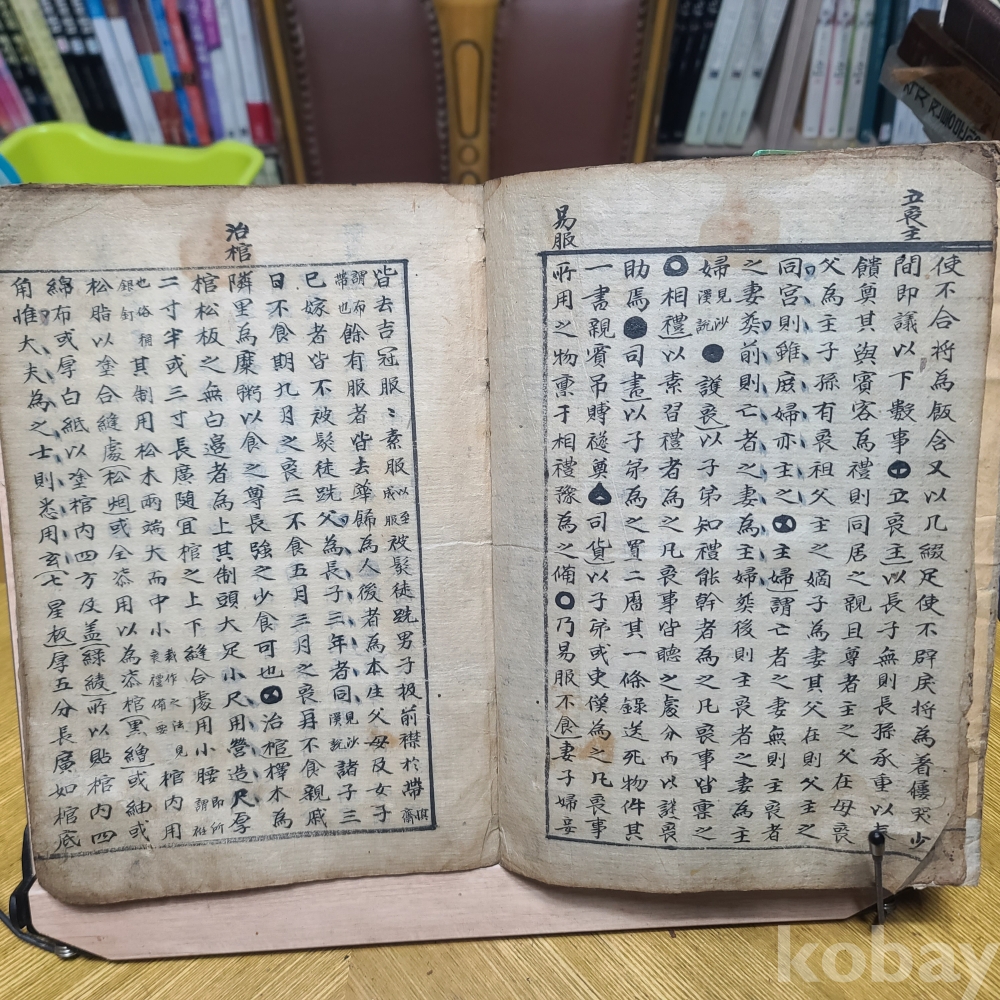 立喪主
易服
使不合將為飯含又以几綴足使不辟戾將為著僂哭少
間即議以下數事立喪主以長子無則長孫承重以奉
饋奠其與賓客為禮則同居之親且尊者主之父在母喪
父為主子孫有喪祖父主之嫡子為妻其父在則父主之
同宮則雖庶婦亦主之主婦謂亡者之妻無則主喪者
之妻葬前則亡者之妻為主婦葬後則主喪者之妻為主
婦見沙溪說護喪以子弟知禮能幹者為之凡喪事皆稟之
相禮以素習禮者為之凡喪事皆聽之處分而以護喪
助焉司書以子弟為之置二曆其一條錄送死物件其
一書親賓吊賻襚奠司貨以子弟或吏僕為之凡喪事
所用之物稟于相禮豫為之備乃易服不食妻子婦妾
治棺
皆去吉冠服素服以至成服被髮徒跣男子扱前襟於帶
謂布帶也餘有服者皆去華餙為人後者為本生父母及女子
已嫁者皆不被髮徒跣父為長子三年者同見沙溪說諸子三
日不食期九月之喪三不食五月三月之喪再不食親戚
隣里為糜粥以食之尊長強之少食可也治棺擇木為
棺松板之無白邊者為上其制頭大足小尺用營造尺厚
二寸半或三寸長廣隨宜棺之上下縫合處用小腰
銀釘其制用松木兩端大而中小棺內用
松脂以塗合縫處松烟或全漆用以為漆棺黑繒或紬或
綿布或厚白紙以塗棺內四方及盖綠綾所以貼棺內四
角惟大夫為之士則悉用玄七星板厚五分長廣如棺底